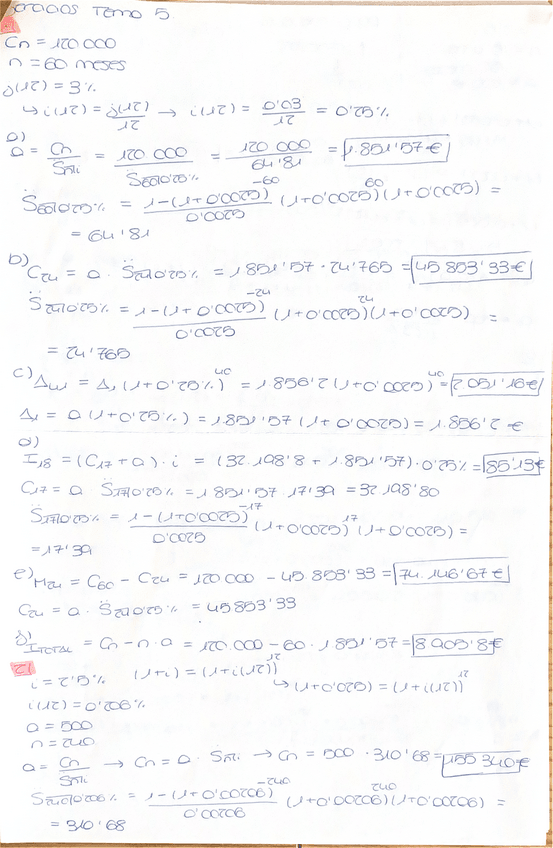 TEMA 5
Cn = 120 000
n = 60 meses
j(12) = 3%
↳ i(12) = j(12)/12 → i(12) = 0'03/12 = 0'25%
a)
a = Cn/S̈n¬i = 120 000/S̈60¬0'25% = 120 000/64'81 = 1.851'57 €
S̈60¬0'25% = 1-(1+0'0025)^-60/0'0025 (1+0'0025)^60 (1+0'0025) =
= 64'81
b)
C24 = a · S̈24¬0'25% = 1851'57 · 24'765 = 45 853'33 €
S̈24¬0'25% = 1-(1+0'0025)^-24/0'0025 (1+0'0025)^24 (1+0'0025) =
= 24'765
c) Δ41 = Δ1 (1+0'25%)^40 = 1.856'2 (1+0'0025)^40 = 2 051'16 €
Δ1 = a (1+0'25%) = 1.851'57 (1+0'0025) = 1.856'2 €
d)
I18 = (C17 + a) · i = (32.198'8 + 1.851'57) · 0'25% = 85'13 €
C17 = a S̈17¬0'25% = 1851'57 · 17'39 = 32 198'80
S̈17¬0'25% = 1-(1+0'0025)^-17/0'0025 (1+0'0025)^17 (1+0'0025) =
= 17'39
e) M24 = C60 - C24 = 120 000 - 45.853'33 = 74.146'67 €
C24 = a · S̈24¬0'25% = 45853'33
f) ITOTAL = Cn - n · a = 120.000 - 60 · 1.851'57 = 8 905'8 €
2)
i = 2'5% (1+i) = (1+i(12))^12
↳ (1+0'025) = (1+i(12))^12
i(12) = 0'206%
a = 500
n = 240
a = Cn/S̈n¬i → Cn = a · S̈n¬i → Cn = 500 · 310'68 = 155 340 €
S̈240¬0'206% = 1-(1+0'00206)^-240/0'00206 (1+0'00206)^240 (1+0'00206) =
= 310'68